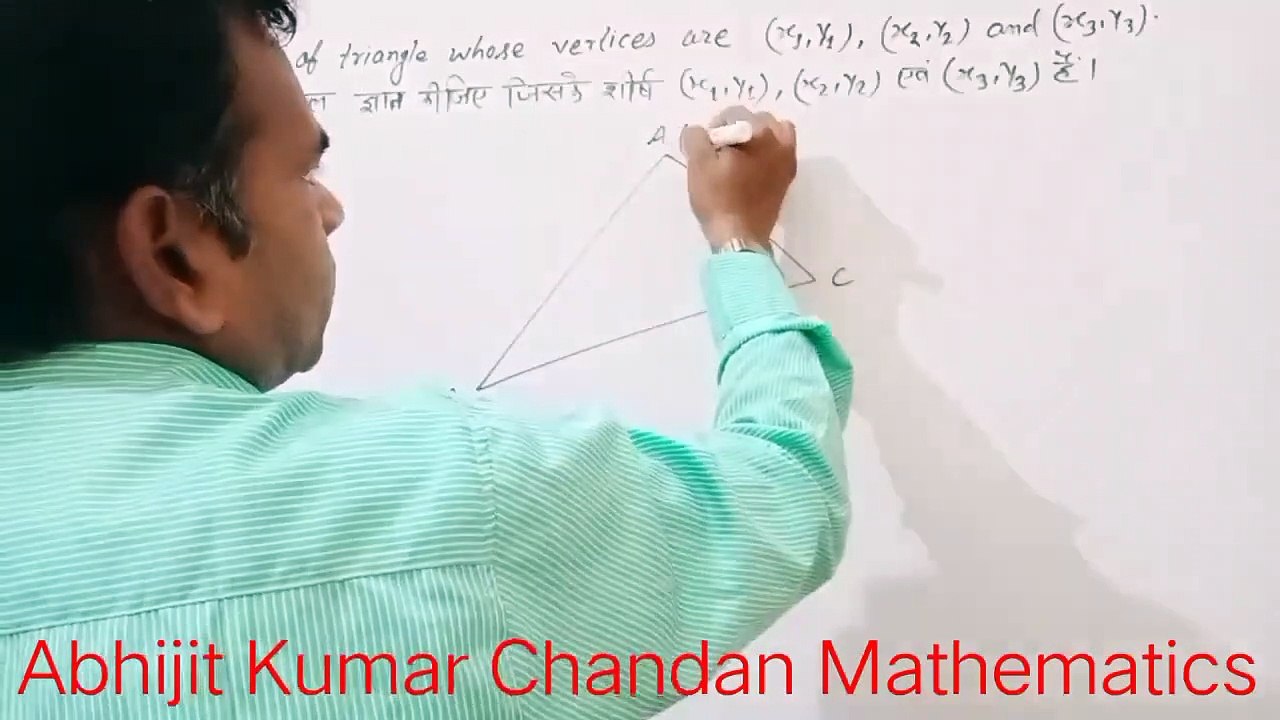 of triangle whose vertices are (x₁,y₁), (x₂,y₂) and (x₃,y₃).
ज्ञात कीजिए जिसके शीर्ष (x₁,y₁), (x₂,y₂) एवं (x₃,y₃) हैं।
A (
C
Abhijit Kumar Chandan Mathematics